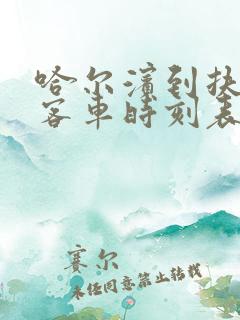 哈尔滨到扶
客车时刻表
赛尔
未经同意禁止转载